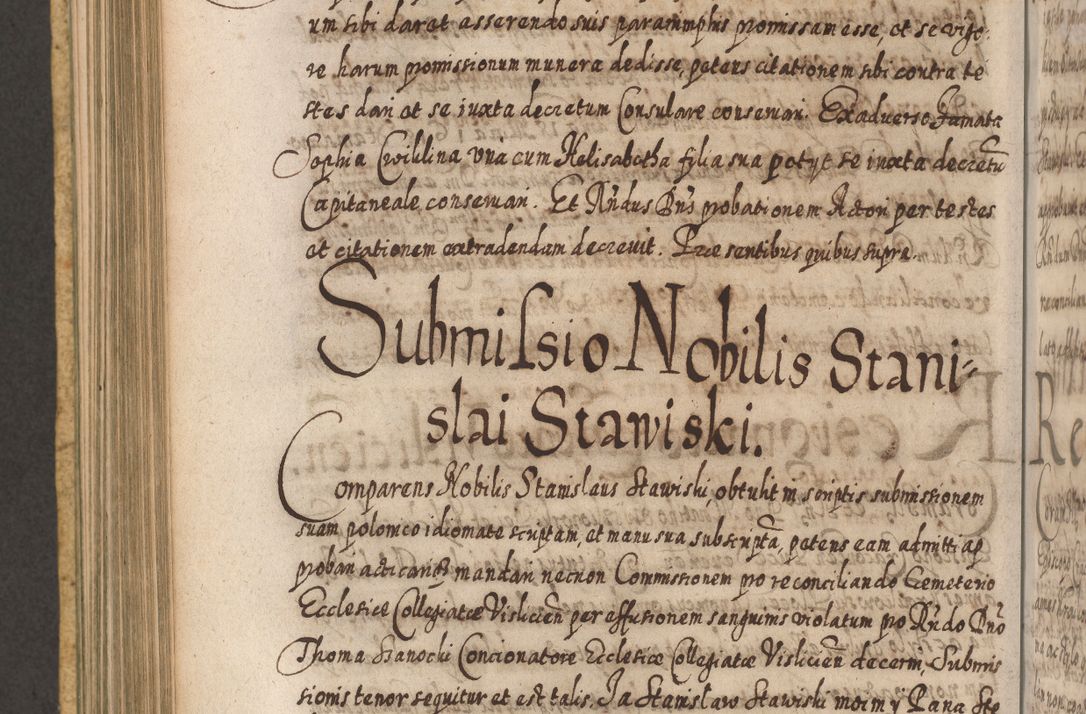 um sibi daret asserendo suis paranimphis promissam esse, et se vigo-
re harum promissionum munera dedisse, petens citationem sibi contra te
stes dari et se iuxta decretum Consulare conservari. Ex adverso famata
Sophia Cwiklina una cum Helisabetha filia sua petyt se iuxta decretũ
Capitaneale conservari. Et Rñdus Dñs probationem Actori per testes
et citationem extradendam decrevit. Præsentibus quibus supra.
Submissio Nobilis Stani-
slai Stawiski.
Comparens Nobilis Stanislaus Stawiski, obtulit in scriptis submissionem
suam polonico idiomate scriptam, et manu sua subscriptã, petens eam admitti ap
probari acticariq mandari necnon Commissionem pro reconciliando Cemeterio
Ecclesiæ Collegiatæ Vislicień per effusionem sanguinis violatum pro Rńdo Dno
Thoma Concionatore Ecclesiæ Collegiatæ Vislicień decerni, Submis
sionis tenor sequitur et est talis. Ja Stanisław Stawiski moim y Pana Ste